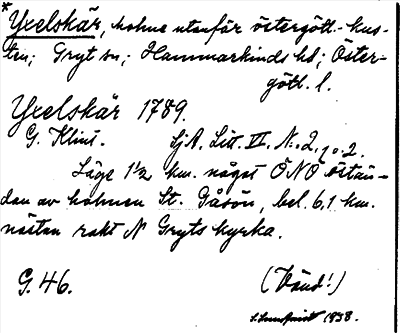 *Yxelskär, holme utanför östergötl.-kus-
ten; Gryt sn; Hammarkinds hd; Öster-
götl. l.
Yxelskär 1789.
G. Klint. SjA. Litt. VI. N:o 2, 1 o. 2.
Läge 1½ km. något ÖNO östän-
dan av holmen St. Gåsön, bel. 6,1 km.
nästan rakt N Gryts kyrka.
G. 46. (Vänd!)
1938.